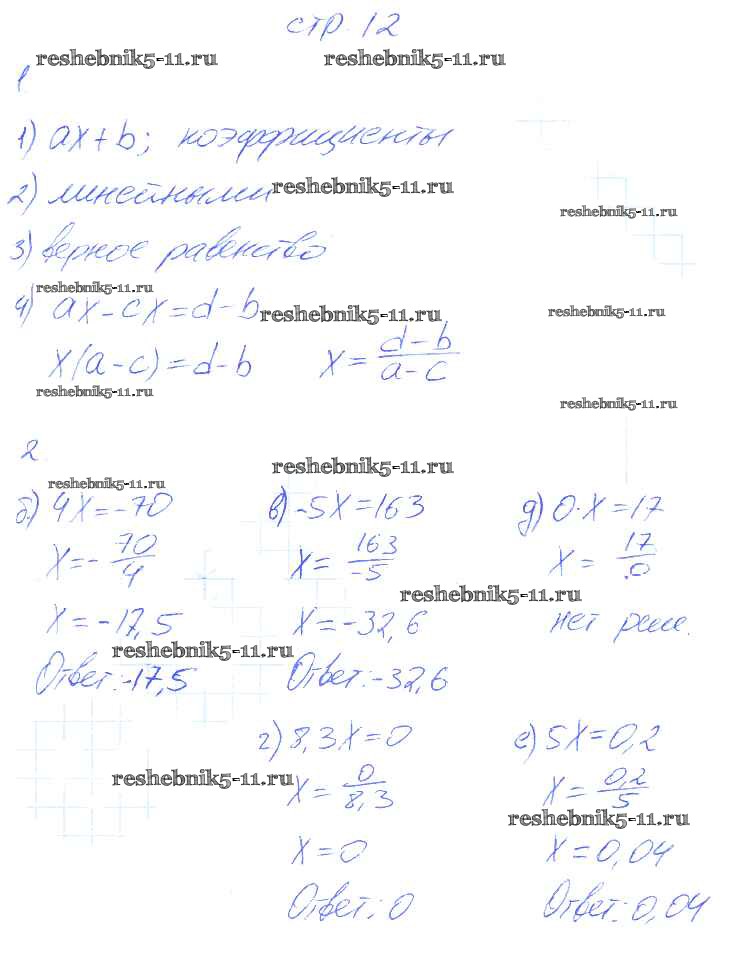 стр. 12
reshebnik5-11.ru reshebnik5-11.ru
1
1) ax+b; коэффициенты
2) линейными reshebnik5-11.ru
reshebnik5-11.ru
3) верное равенство
reshebnik5-11.ru
4) ax-cx=d-b reshebnik5-11.ru reshebnik5-11.ru
x(a-c)=d-b x=\frac{d-b}{a-c}
reshebnik5-11.ru reshebnik5-11.ru
2
reshebnik5-11.ru
reshebnik5-11.ru
б) 4x=-70
x=-\frac{70}{4}
x=-17,5
reshebnik5-11.ru
Ответ:-17,5
в) -5x=163
x=\frac{163}{-5}
x=-32,6
Ответ:-32,6
г) 8,3x=0
reshebnik5-11.ru
x=\frac{0}{8,3}
x=0
Ответ: 0
д) 0·x=17
x=\frac{17}{0}
reshebnik5-11.ru
нет реше.
е) 5x=0,2
x=\frac{0,2}{5}
reshebnik5-11.ru
x=0,04
Ответ: 0,04